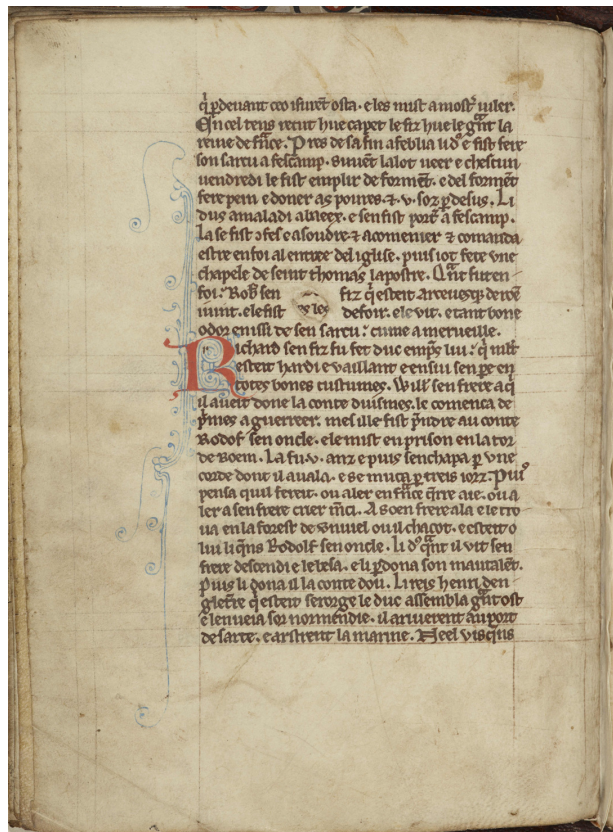 q̃ ꝑdeuant ceo isirẽt osta . e les mist a most᷑ iuler .
En cel tens recut hue capet le fiz hue le g̃nt la
reiue de fñce . Pres de sa fin afeblia li dꝰ e fist fere
son sarcu a fescamp . suuẽt lalot ueer e chescun
uendredi le fist emplir de formẽt . e del formẽt
fere pein e doner as poures . ⁊ . v . solz ꝑ desus . Li
dus amaladi a . e sen fist port᷑ a fescamp .
La se fist ↄfes e asoudre ⁊ acomenier ⁊ comanda
estre enfoi al entree del iglise . puis iot fete vne
chapele de seint thomas lapostre . Q̃nt fut en
foi : Rob̃ sen fiz q̃ esteit arceuesq̃ de
. ele fist les defoir . ele vit . etant bone
odor en issi de sen sarcu : cume a merueille .
Richard sen fiz fu fet duc emp̃s lui : q̃ mlt̃
esteit hardi e vaillant e ensiui sen pere en
totes bones custumes . Will̃ sen frere a q̃
il aueit done la conte duismes . le comenca de
p̃mes a guerreer . mes ille fist p̃ndre au conte
Rodolf sen oncle . ele mist en prison en la tor
de Roem . La fu . v . anz e puis senchapa ꝑ vne
corde dont il auala . e se muca ꝑ treis iorz . Puiꝰ
pensa quil fereit . ou aler en fñce q̃rre aie . ou a
ler a sen frere crier m̃ci . A soen frere ala e le tro
ua en la forest de vnuiel ou il chacot . e esteit o
lui li q̃ns Rodolf sen oncle . li dꝰ q̃nt il vit sen
frere descendi e le besa . e li ꝑdona son mautalẽt .
Puis li dona il la conte dou . Li reis henri den
glet᷑re q̃ esteit serorge le duc assembla g̃nt ost
e lenueia sor normendie . il ariuerent au port
de sarte . e arstrent la marine . Neel visq̃ns